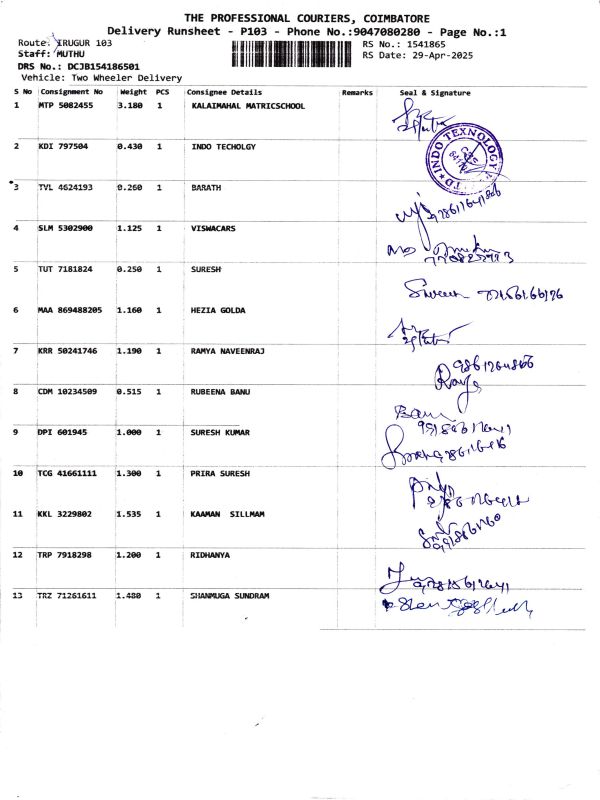 THE PROFESSIONAL COURIERS, COIMBATORE
Delivery Runsheet - P103 - Phone No.:9047080280 - Page No.:1
Route: IRUGUR 103
RS No.: 1541865
Staff: MUTHU
RS Date: 29-Apr-2025
DRS No.: DCJB154186501
Vehicle: Two Wheeler Delivery
S No Consignment No Weight PCS Consignee Details Remarks Seal & Signature
1 MTP 5082455 3.180 1 KALAIMAHAL MATRICSCHOOL
2 KDI 797504 0.430 1 INDO TECHOLGY
INDO TEXNOLOGY
3 TVL 4624193 0.260 1 BARATH
4 SLM 5302900 1.125 1 VISWACARS
5 TUT 7181824 0.250 1 SURESH
6 MAA 869488205 1.160 1 HEZIA GOLDA
7 KRR 50241746 1.190 1 RAMYA NAVEENRAJ
8 CDM 10234509 0.515 1 RUBEENA BANU
9 DPI 601945 1.000 1 SURESH KUMAR
10 TCG 41661111 1.300 1 PRIRA SURESH
11 KKL 3229802 1.535 1 KAAMAN SILLMAM
12 TRP 7918298 1.200 1 RIDHANYA
13 TRZ 71261611 1.480 1 SHANMUGA SUNDRAM